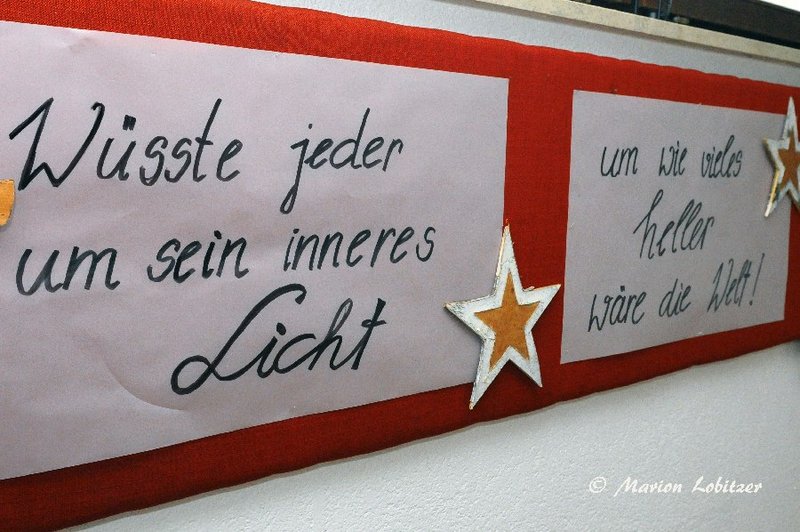 Wüsste jeder
um sein inneres
Licht
um wie vieles
heller
wäre die Welt!
© Marion Lobitzer